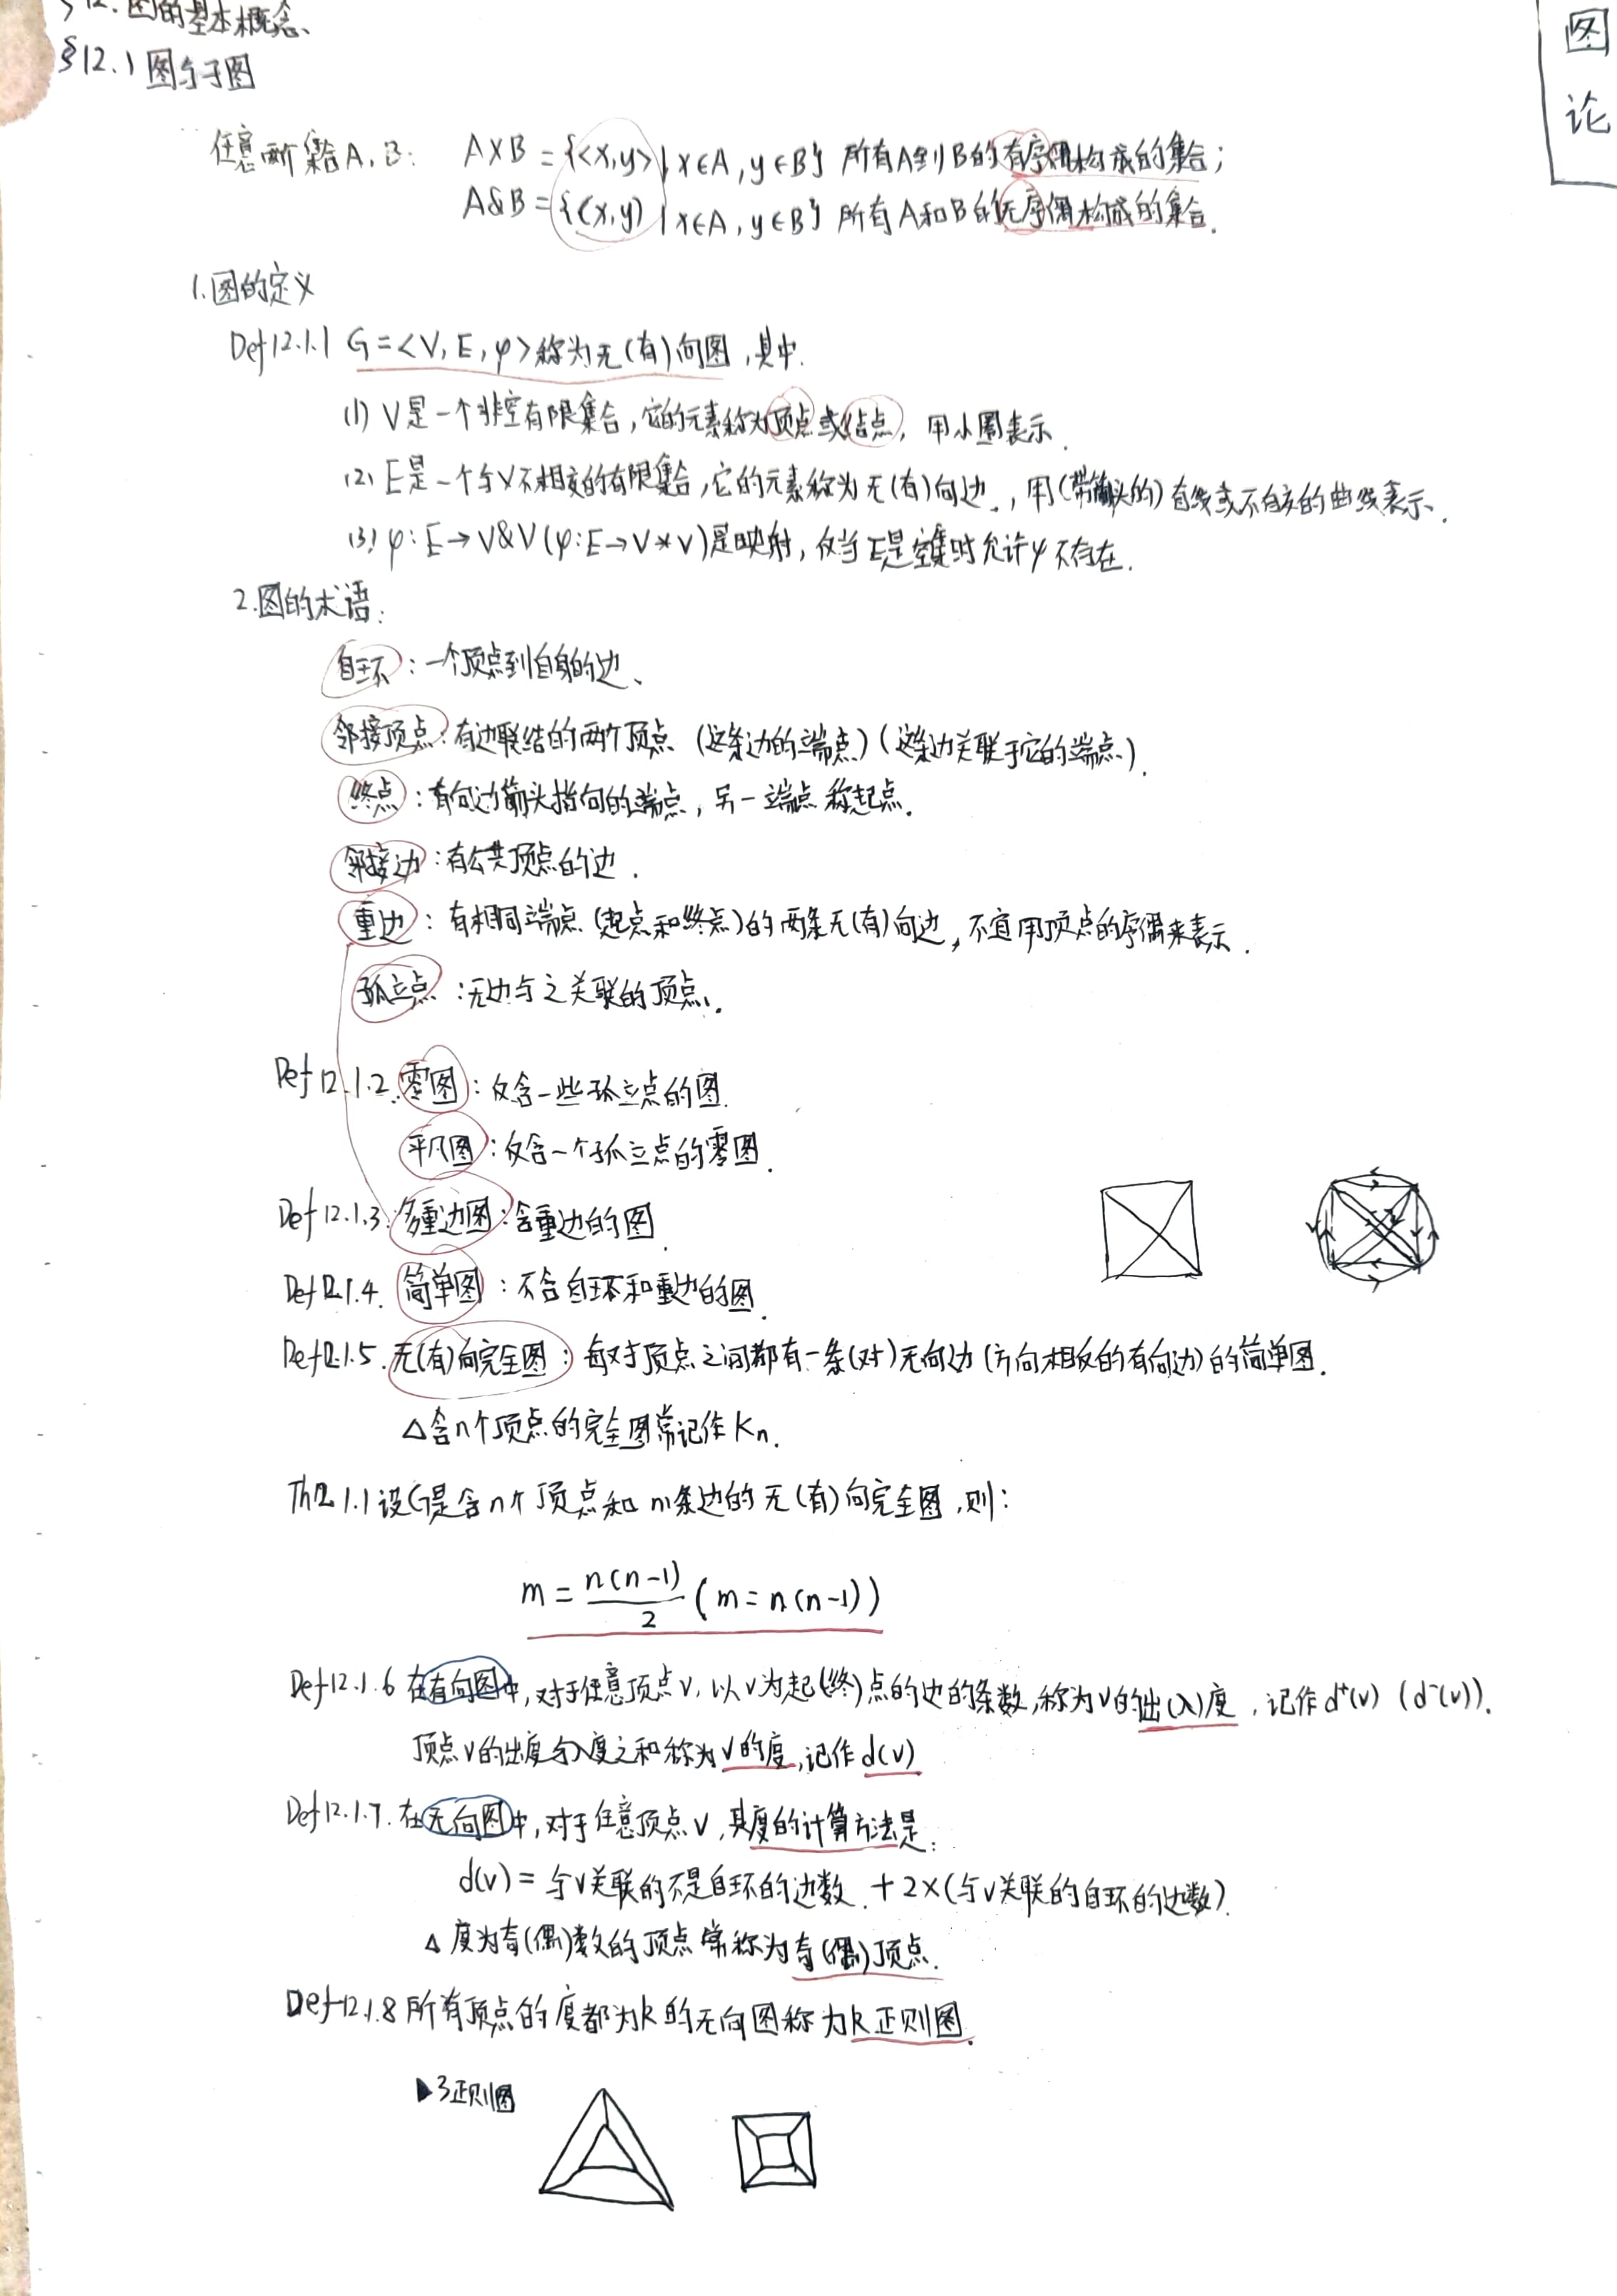 §12. 图的基本概念、
§12.1 图与子图
图
论
任意两个集合A, B: A×B = {<x,y> | x∈A, y∈B} 所有A到B的有序偶构成的集合;
A&B = {(x,y) | x∈A, y∈B} 所有A和B的无序偶构成的集合.
1.图的定义
Def12.1.1 G=<V, E, φ>称为无(有)向图,其中.
(1) V是一个非空有限集合,它的元素称为顶点或结点,用小圈表示.
(2) E是一个与V不相交的有限集合,它的元素称为无(有)向边.,用(带箭头的)直线或不自交的曲线表示.
(3) φ:E→V&V(φ:E→V*V)是映射,仅当E是空集时允许φ不存在.
2.图的术语:
自环:一个顶点到自身的边、
邻接顶点:有边联结的两个顶点 (这条边的端点)(这条边关联于它的端点).
终点:有向边箭头指向的端点,另一端点称起点.
邻接边:有公共顶点的边.
重边:有相同端点(起点和终点)的两条无(有)向边,不宜用顶点的序偶来表示.
孤立点:无边与之关联的顶点.
Def12.1.2.零图:仅含一些孤立点的图.
平凡图:仅含一个孤立点的零图.
Def12.1.3.多重边图:含重边的图.
Def12.1.4.简单图:不含自环和重边的图.
Def12.1.5.无(有)向完全图:每对顶点之间都有一条(对)无向边(方向相反的有向边)的简单图.
△含n个顶点的完全图常记作Kn.
Th12.1.1设G是含n个顶点和m条边的无(有)向完全图,则:
m = n(n-1)/2 (m = n(n-1))
Def12.1.6 在有向图中,对于任意顶点v,以v为起(终)点的边的条数,称为v的出(入)度,记作d⁺(v) (d⁻(v)).
顶点v的出度与入度之和称为v的度,记作d(v)
Def12.1.7.在无向图中,对于任意顶点v,其度的计算方法是:
d(v)= 与v关联的不是自环的边数.+2×(与v关联的自环的边数).
△度为奇(偶)数的顶点常称为奇(偶)顶点.
Def12.1.8 所有顶点的度都为k的无向图称为k正则图.
▶3正则图